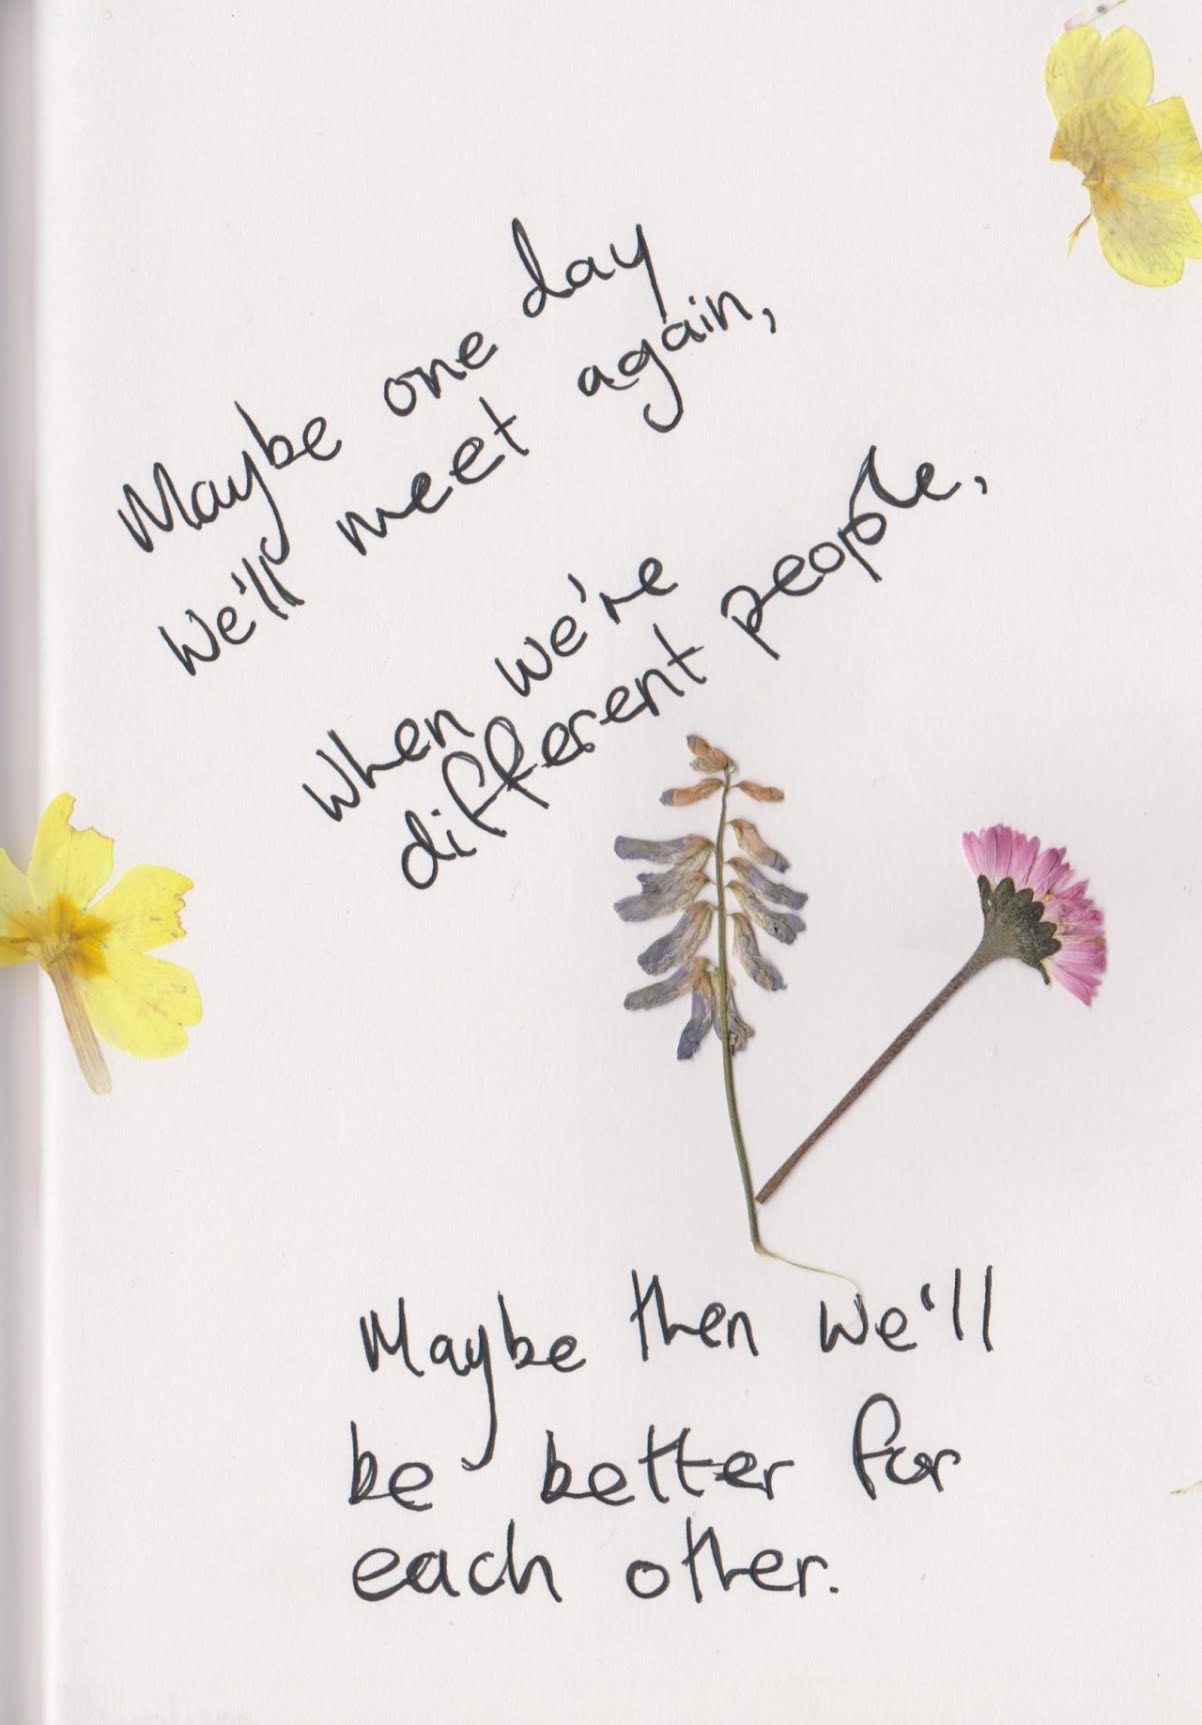 Maybe one day
We'll meet again,
When we're
different people,
Maybe then we'll
be better for
each other.